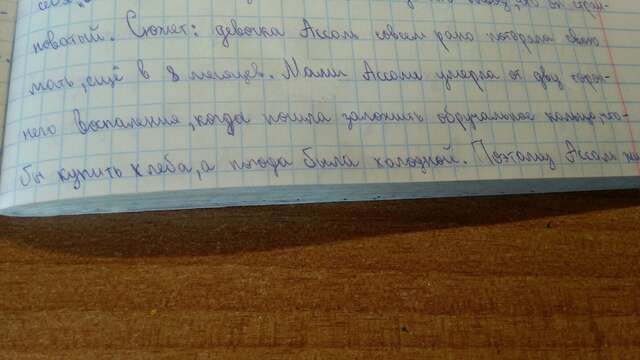 новатый. Сюжет: девочка Ассоль совсем рано потеряла свою
мать, ещё в 8 месяцев. Мама Ассоль умерла от двустороннего
него воспаления, когда пошла заложить обручальное кольцо, что-
бы купить хлеба, а погода была холодной. Поэтому Ассоль